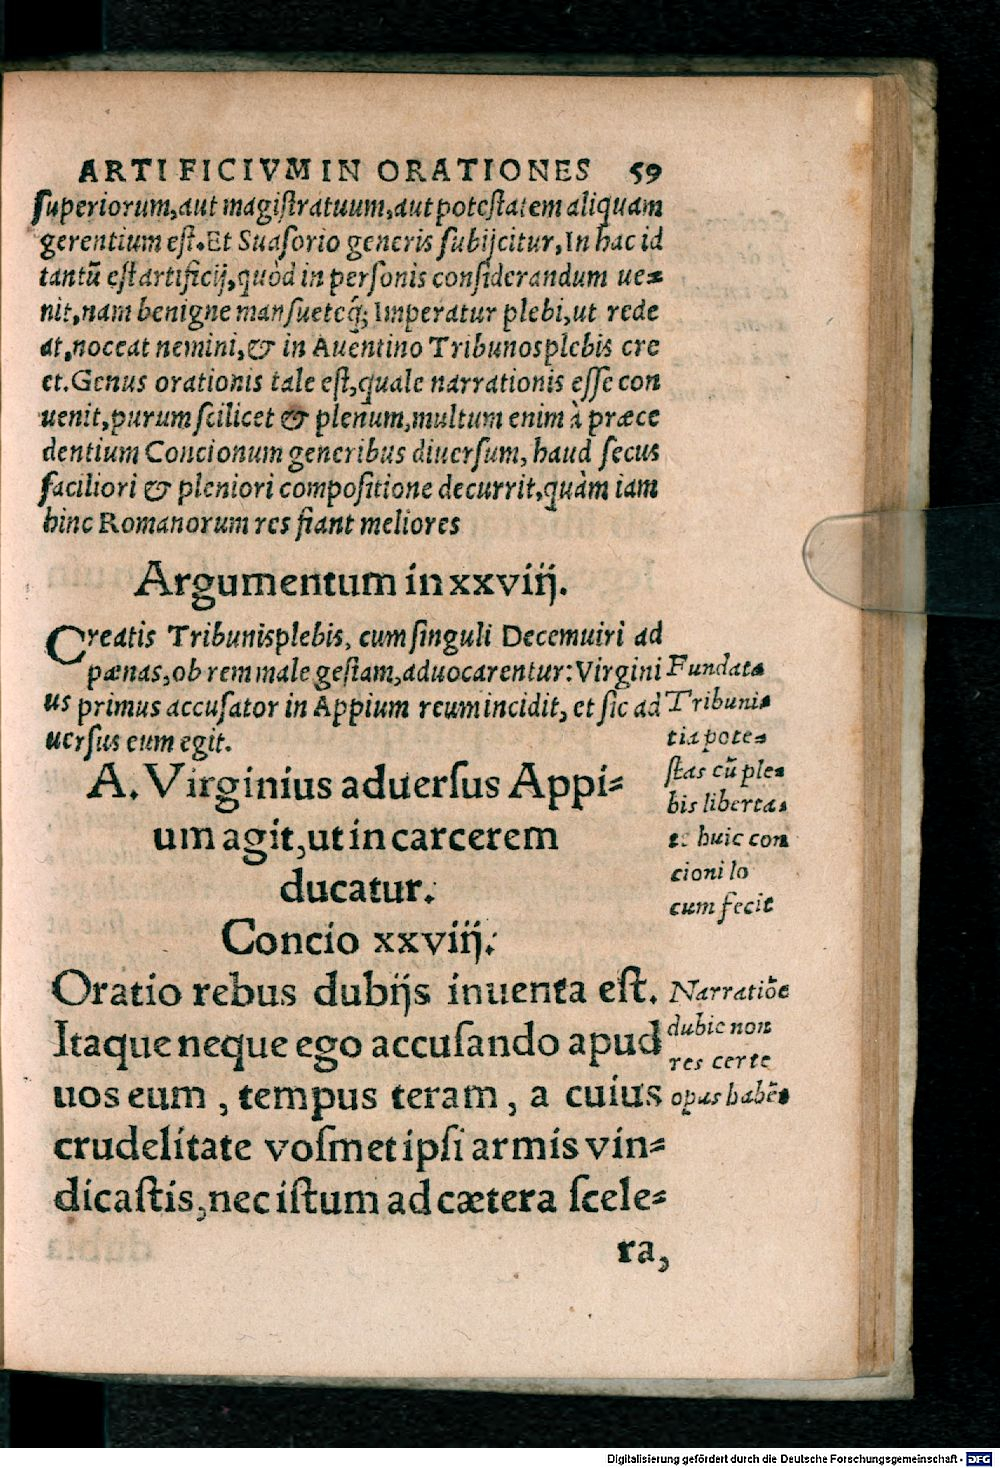 ARTIFICIVM IN ORATIONES 59
ſuperiorum, aut magiſtratuum, aut poteſtatem aliquam
gerentium eſt. Et Suaſorio generis ſubijcitur, In hac id
tantū eſt artificij, quòd in perſonis conſiderandum ue⸗
nit, nam benigne manſueteq́; Imperatur plebi, ut rede
at, noceat nemini, & in Auentino Tribunosplebis cre
et. Genus orationis tale eſt, quale narrationis eſſe con
uenit, purum ſcilicet & plenum, multum enim à præce
dentium Concionum generibus diuerſum, haud ſecus
faciliori & pleniori compoſitione decurrit, quàm iam
hinc Romanorum res fiant meliores
Argumentum in xxviij.
Creatis Tribunisplebis, cum ſinguli Decemuiri ad
pænas, ob rem male geſtam, aduocarentur: Virgini
us primus accuſator in Appium reum incidit, et ſic ad
uerſus eum egit.
Fundata
Tribuni⸗
tia pote⸗
ſtas cū ple⸗
bis liberta⸗
te huic con
cioni lo
cum fecit
A. Virginius aduerſus Appi⸗
um agit, ut in carcerem
ducatur.
Concio xxviij.
Oratio rebus dubijs inuenta eſt.
Itaque neque ego accuſando apud
uos eum, tempus teram, a cuius
crudelitate voſmetipſi armis vin⸗
dicaſtis, nec iſtum ad cætera ſcele⸗
ra,
Narratiōe
dubie non
res certe
opus habēt
Digitalisierung gefördert durch die Deutsche Forschungsgemeinschaft - DFG